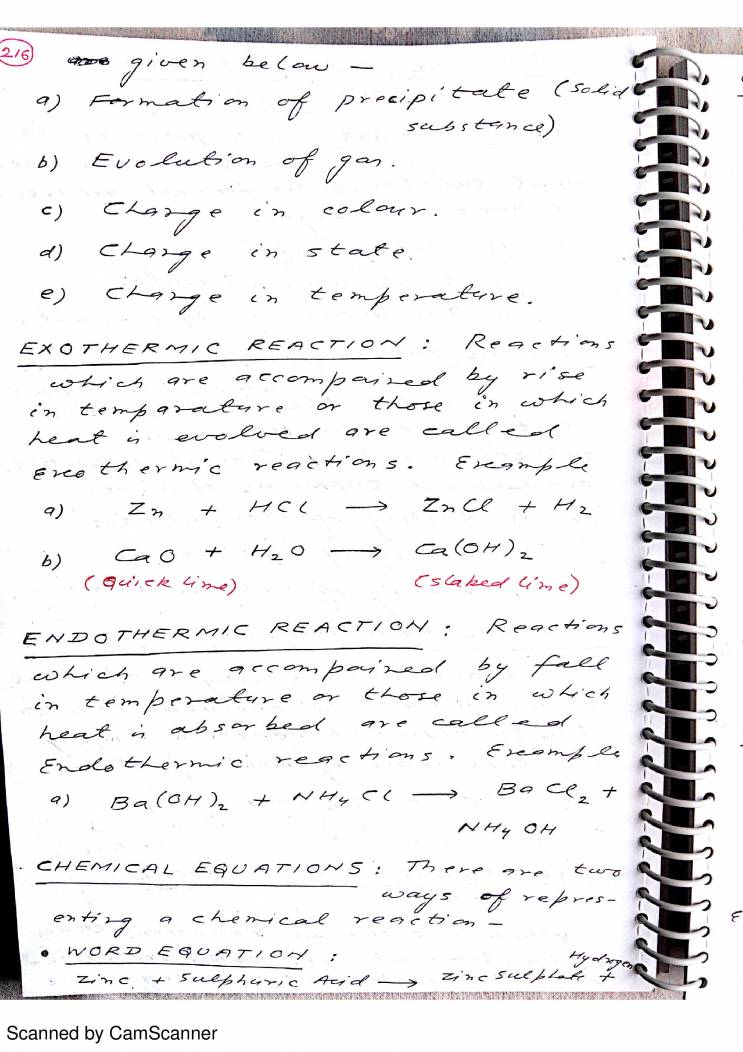 216
given below —
a) Formation of precipitate (Solid
substance)
b) Evolution of gas.
c) Change in colour.
d) Change in state.
e) Change in temperature.
EXOTHERMIC REACTION : Reactions
which are accompained by rise
in temparature or those in which
heat is evolved are called
Exothermic reactions. Example
a) Zn + HCl → ZnCl + H₂
b) CaO + H₂O → Ca(OH)₂
(Quick lime) (slaked lime)
ENDOTHERMIC REACTION : Reactions
which are accompained by fall
in temperature or those in which
heat is absorbed are called
Endothermic reactions. Example
a) Ba(OH)₂ + NH₄Cl → BaCl₂ +
NH₄OH
CHEMICAL EQUATIONS : There are two
ways of repres-
enting a chemical reaction —
• WORD EQUATION :
Hydrogen
Zinc + Sulphuric Acid → Zinc Sulphate +
Scanned by CamScanner